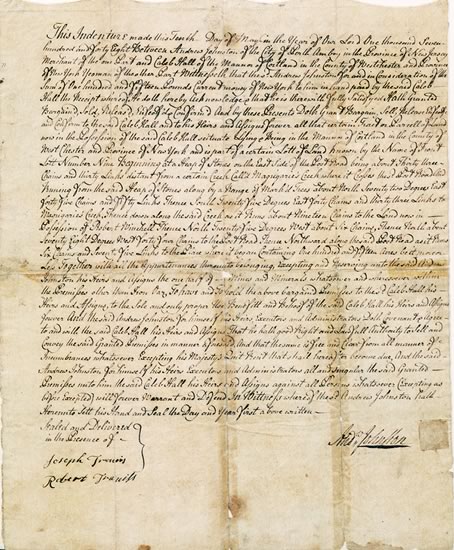 This Indenture made this Tenth Day of May in the Year of Our Lord One thousand Seven
hundred and forty Eight Between Andrew Johnston of the City of Perth Amboy in the Province of New Jersey
Merchant of the one Part and Caleb Hall of the Mannor of Cortland in the County of Westchester and Province
of New York Yeoman of the other Part Witnesseth that the said Andrew Johnston for and in Consideration of the
Sum of One hundred and fifteen Pounds Currant money of New York to him in hand paid by the said Caleb
Hall the Receipt whereof he do hereby acknowledge and thereof fully Satisfyed Hath Granted
Bargained, Sold, Released and Confirmed And by these Presents Doth Grant Bargain Sell Release
and Confirm unto the said Caleb Hall and to his Heirs and Assigns forever all that certain
now in the Possession of the said Caleb Hall situate and being in the Mannor of Cortland in the County of
West Chester and Province of New York and is part of a certain Lott of Land known by the Name of Front
Lott Number Nine Beginning at a Heap of Stones on the East Side of the Road being about Thirty three
Chains and thirty Links distant from a certain Creek Called where it Crosses the Road
Running from the said Heap of Stones along by a Range of Mark'd Trees about North Seventy two Degrees East
forty five Chains and fifty Links Thence South Twenty five Degrees East forty Chains and thirty three Links to
Creek Thence down along the said Creek as it Runs about Nineteen Chains to the Land now in
Possession of Robert Thence North Twenty five Degrees West about Six Chains, Thence South about
Seventy Eight Degrees West forty four Chains to the Road Thence Northward along the said Road as it Runs
Six Chains and Seven Links to the Place where it began Containing One hundred and fifteen acres be it more or
Less Together with all the Appurtenances thereunto belonging, Excepting and Reserving
his Heirs and Assigns the one half of all Mines and Minerals whatsoever
the Premisses other than To have and to hold the above bargained Premisses to the said Caleb Hall his
Heirs and Assigns to the Sole and only proper Use Benefit and Behoof of the said Caleb Hall his Heirs and Assigns
forever And the said Andrew Johnston for himself his Heirs Executors and Administrators Doth Covenant & agree
to and with the said Caleb Hall his Heirs and Assigns That he hath good Right and Lawfull Authority to sell and
Convey the said Granted Premisses in manner aforesaid And that the same is free and Clear from all manner of
Incumbrances whatsoever Excepting his Majesty's Quit Rent that shall hereafter become due, And the said
Andrew Johnston for himself his Heirs Executors and Administrators all and singular the said Granted
Premisses unto him the said Caleb Hall his Heirs and Assigns against all Persons whatsoever Excepting as
before Excepted will forever Warrant and Defend In Wittness whereof the said Andrew Johnston hath
hereunto sett his hand and Seal the Day and Year first above written
Sealed and Delivered
in the Presence of
Andw Johnston
Joseph
Robert